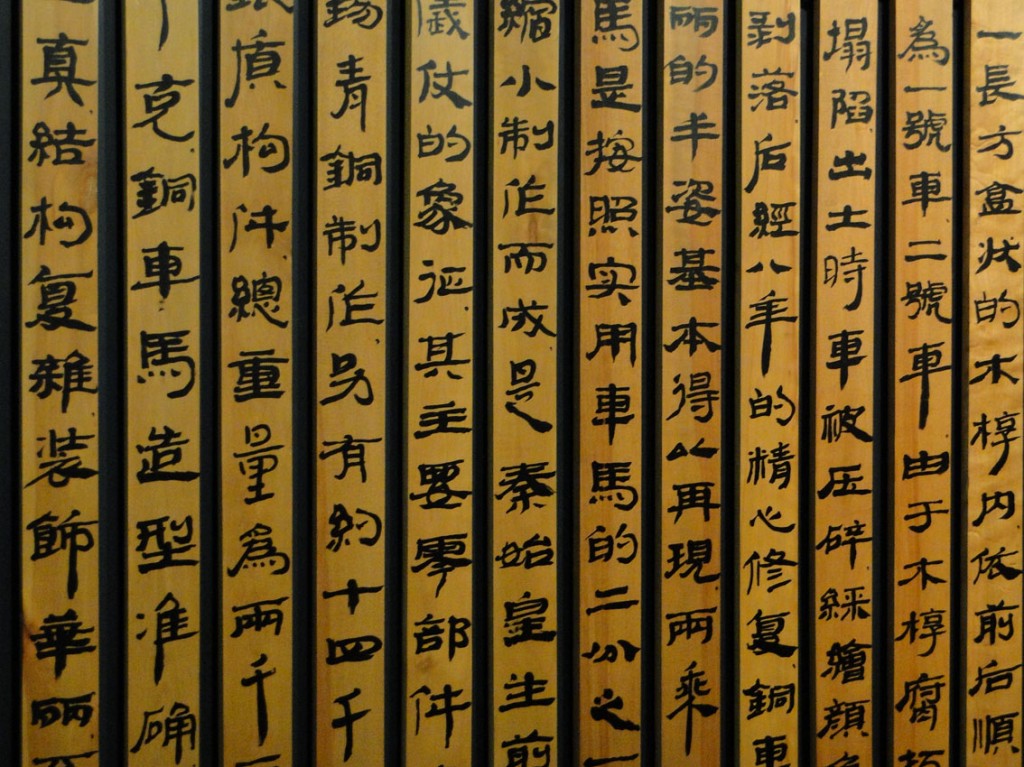 一長方盒狀的木椁内依前后順
為一號車二號車由于木椁腐
塌陷出土時車被压碎綵繪顔
剥落后經八年的精心修复銅車
丽的丰姿基本得以再現兩乘
馬是按照实用車馬的二分之一
縮小制作而成是秦始皇生前
仗的象征其主要零部件
青銅制作另有約十四千
质构件總重量為兩千
克銅車馬造型准确
真结构复雜装飾華丽